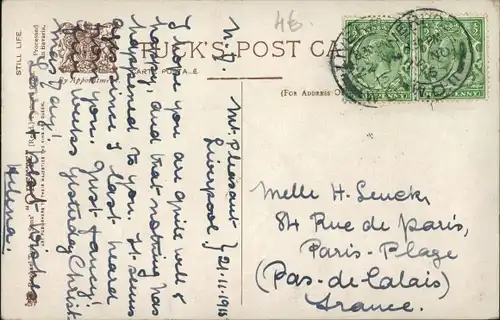 STILL LIFE.
Processed
in Bavaria.
By Appointment
TUCK'S POST CA
CARTE POSTALE
(For Address O
46.
N. 7.
Mt. Pleasant
Liverpool
21-11-1915
I hope you are quite well &
happy and that nothing has
happened to you. It seems
ages since I last heard
from you. Just fancy!
5 weeks yesterday Christ-
mas Day!
best wishes
Helena.
Melle H. Leuck,
84 Rue de Paris,
Paris-Plage
(Pas-de-Calais)
France.